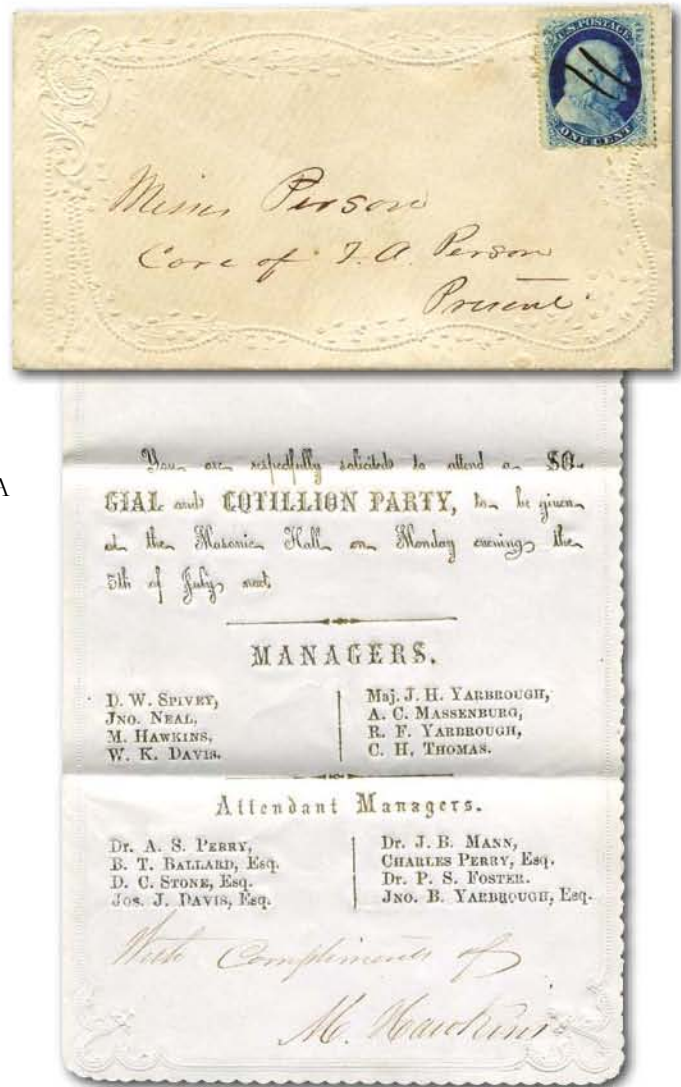 U.S. POSTAGE
ONE CENT
Misses Person
Care of T. A. Person
Present
A
You are respectfully solicited to attend a SO-
CIAL and COTILLION PARTY, to be given
at the Masonic Hall on Monday evening the
5th of July next.
MANAGERS.
D. W. SPIVEY,
JNO. NEAL,
M. HAWKINS,
W. K. DAVIS.
Maj. J. H. YARBROUGH,
A. C. MASSENBURG,
R. F. YARBROUGH,
C. H. THOMAS.
Attendant Managers.
Dr. A. S. PERRY,
B. T. BALLARD, Esq.
D. C. STONE, Esq.
Jos. J. DAVIS, Esq.
Dr. J. B. MANN,
CHARLES PERRY, Esq.
Dr. P. S. FOSTER.
JNO. B. YARBROUGH, Esq.
With Compliments of
M. Hawkins